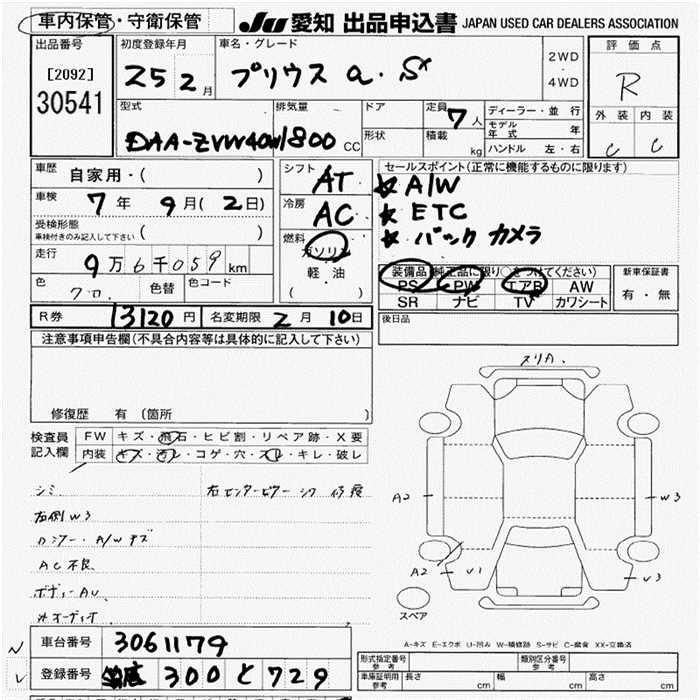 車内保管・守衛保管 JU 愛知 出品申込書 JAPAN USED CAR DEALERS ASSOCIATION
出品番号 [2092] 30541
初度登録年月 25 2月
車名・グレード プリウス α・S
2WD・4WD
評価点 R
外装 C 内装 C
型式 DAA-ZVW40W
排気量 1800 CC
ドア 形状
定員 7人
積載 kg
ディーラー・並行
モデル年式 年
ハンドル 左・右
車歴 自家用・( )
車検 7年 9月(2日)
受検形態 車検付きのみ記入して下さい ( )
走行 9万6千059km
色 クロ 色替 色コード
シフト AT
冷房 AC
燃料 ガソリン 軽油 ( )
セールスポイント(正常に機能するものに限ります)
☆ A/W
☆ ETC
☆ バックカメラ
装備品(純正品に限り○をつけてください)
PS PW エアB AW
SR ナビ TV カワシート
新車保証書 有・無
後日品
R券 13120円 名変期限 2月 10日
注意事項申告欄(不具合内容等は具体的に記入して下さい)
修復歴 有 (箇所 )
検査員記入欄
FW キズ・飛石・ヒビ割・リペア跡・X要
内装 キズ・汚レ・コゲ・穴・スレ・キレ・破レ
シミ
右センターピラー
右側W3
A/Wキズ
AC不良
スリA.
A2
W3
A2
V1
V3
スペア
A-キズ E-エクボ U-凹み W-補修跡 S-サビ C-腐食 XX-交換済
車台番号 3061179
登録番号 300 と 729
形式指定番号 参考
類別区分番号 参考
車庫証明用 参考 長さ cm 幅 cm 高さ cm